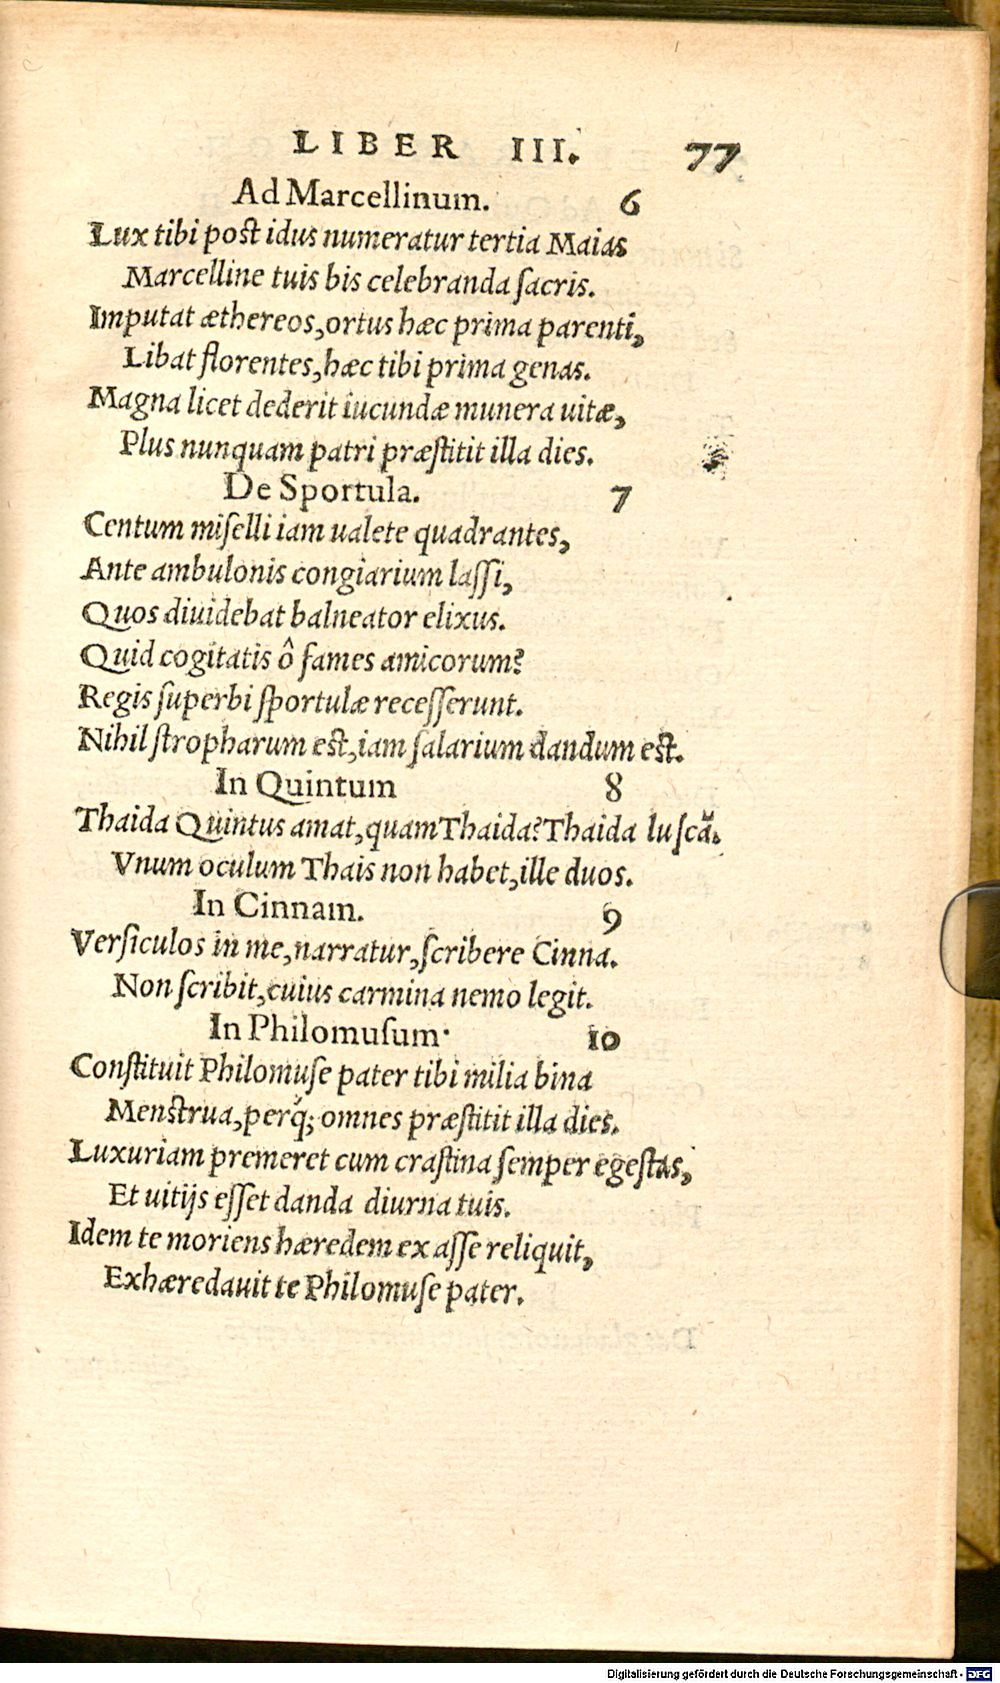 LIBER III. 77
Ad Marcellinum. 6
Lux tibi post idus numeratur tertia Maias
Marcelline tuis bis celebranda ſacris.
Imputat æthereos, ortus hæc prima parenti,
Libat florentes, hæc tibi prima genas.
Magna licet dederit iucundæ munera uitæ,
Plus nunquam patri præſtitit illa dies.
De Sportula. 7
Centum miſelli iam ualete quadrantes,
Ante ambulonis congiarium laſſi,
Quos diuidebat balneator elixus.
Quid cogitatis ô fames amicorum?
Regis ſuperbi ſportulæ receſſerunt.
Nihil ſtropharum est, iam ſalarium dandum est.
In Quintum 8
Thaida Quintus amat, quam Thaida? Thaida luſcā.
Vnum oculum Thais non habet, ille duos.
In Cinnam. 9
Verſiculos in me, narratur, ſcribere Cinna.
Non ſcribit, cuius carmina nemo legit.
In Philomuſum. 10
Conſtituit Philomuſe pater tibi milia bina
Menstrua, perq́; omnes præſtitit illa dies.
Luxuriam premeret cum craſtina ſemper egeſtas,
Et uitijs eſſet danda diurna tuis.
Idem te moriens hæredem ex aſſe reliquit,
Exhæredauit te Philomuſe pater.
Digitalisierung gefördert durch die Deutsche Forschungsgemeinschaft - DFG